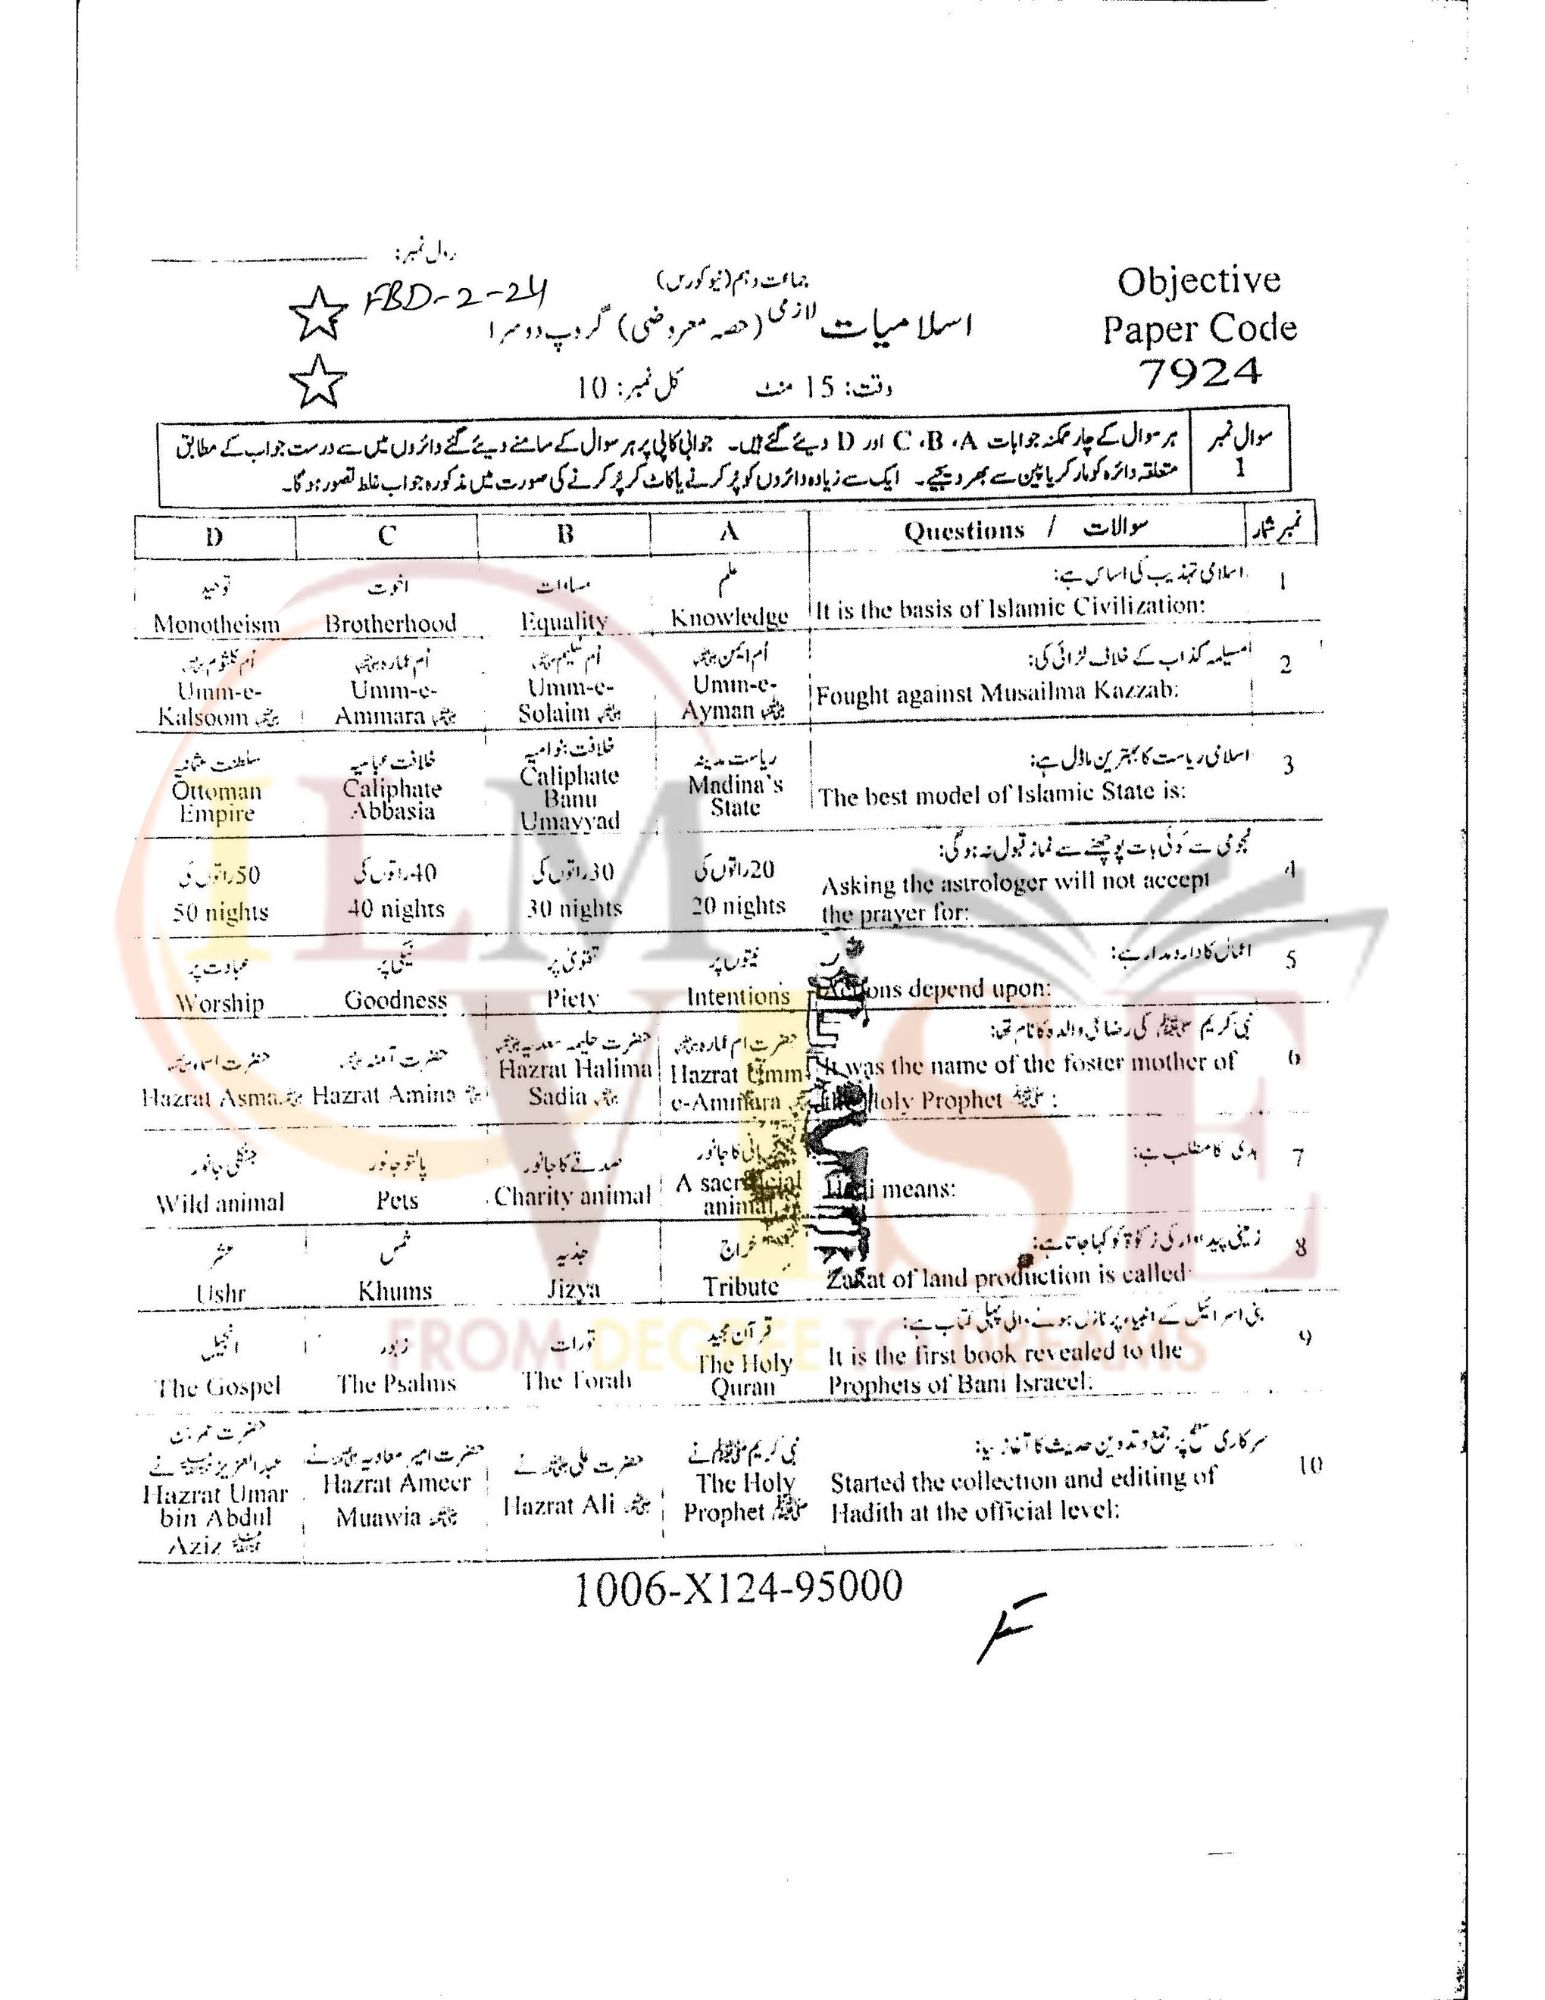 رول نمبر:
FBD-2-24
جماعت دہم (نیو کورس)
اسلامیات لازمی (حصہ معروضی) گروپ دوسرا
وقت: 15 منٹ کل نمبر: 10
Objective
Paper Code
7924
سوال نمبر 1
ہر سوال کے چار ممکنہ جوابات A، B، C اور D دیئے گئے ہیں۔ جوابی کاپی پر ہر سوال کے سامنے دیئے گئے دائروں میں سے درست جواب کے مطابق
متعلقہ دائرہ کو مارکر یا پین سے بھر دیجیے۔ ایک سے زیادہ دائروں کو پُر کرنے یا کاٹ کر پُر کرنے کی صورت میں مذکورہ جواب غلط تصور ہو گا۔
نمبر شمار Questions / سوالات A B C D
1 اسلامی تہذیب کی اساس ہے:
It is the basis of Islamic Civilization:
علم
Knowledge
مساوات
Equality
اخوت
Brotherhood
توحید
Monotheism
2 مسیلمہ کذاب کے خلاف لڑائی کی:
Fought against Musailma Kazzab:
اُم ایمن
Umm-e-
Ayman
اُم سلیم
Umm-e-
Solaim
اُم عمارہ
Umm-e-
Ammara
اُم کلثوم
Umm-e-
Kalsoom
3 اسلامی ریاست کا بہترین ماڈل ہے:
The best model of Islamic State is:
ریاست مدینہ
Madina's
State
خلافت بنو امیہ
Caliphate
Banu
Umayyad
خلافت عباسیہ
Caliphate
Abbasia
سلطنت عثمانیہ
Ottoman
Empire
4 نجومی سے کوئی بات پوچھنے سے نماز قبول نہ ہو گی:
Asking the astrologer will not accept
the prayer for:
20 راتوں کی
20 nights
30 راتوں کی
30 nights
40 راتوں کی
40 nights
50 راتوں کی
50 nights
5 اعمال کا دارومدار ہے:
Actions depend upon:
نیتوں پر
Intentions
تقویٰ پر
Piety
نیکی پر
Goodness
عبادت پر
Worship
6 نبی کریم ﷺ کی رضاعی والدہ کا نام تھا:
It was the name of the foster mother of
the Holy Prophet ﷺ :
حضرت ام عمارہ
Hazrat Umm-
e-Ammara
حضرت حلیمہ سعدیہ
Hazrat Halima
Sadia
حضرت آمنہ
Hazrat Amina
حضرت اسماء
Hazrat Asma
7 ہدی کا مطلب ہے:
Hadi means:
قربانی کا جانور
A sacrificial
animal
صدقے کا جانور
Charity animal
پالتو جانور
Pets
جنگلی جانور
Wild animal
8 زمینی پیداوار کی زکوٰۃ کو کہا جاتا ہے:
Zakat of land production is called:
خراج
Tribute
جذیہ
Jizya
خمس
Khums
عشر
Ushr
9 بنی اسرائیل کے انبیاء پر نازل ہونے والی پہلی کتاب ہے:
It is the first book revealed to the
Prophets of Bani Israeel:
قرآن مجید
The Holy
Quran
تورات
The Torah
زبور
The Psalms
انجیل
The Gospel
10 سرکاری سطح پر جمع و تدوین حدیث کا آغاز کیا:
Started the collection and editing of
Hadith at the official level:
نبی کریم ﷺ نے
The Holy
Prophet ﷺ
حضرت علی نے
Hazrat Ali
حضرت امیر معاویہ نے
Hazrat Ameer
Muawia
حضرت عمر بن
عبدالعزیز نے
Hazrat Umar
bin Abdul
Aziz
1006-X124-95000
F
ILM
VISE
FROM DEGREE TO DREAMS